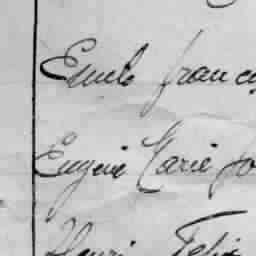 Emile franc
Eugène Marie Jo
Henri Felix